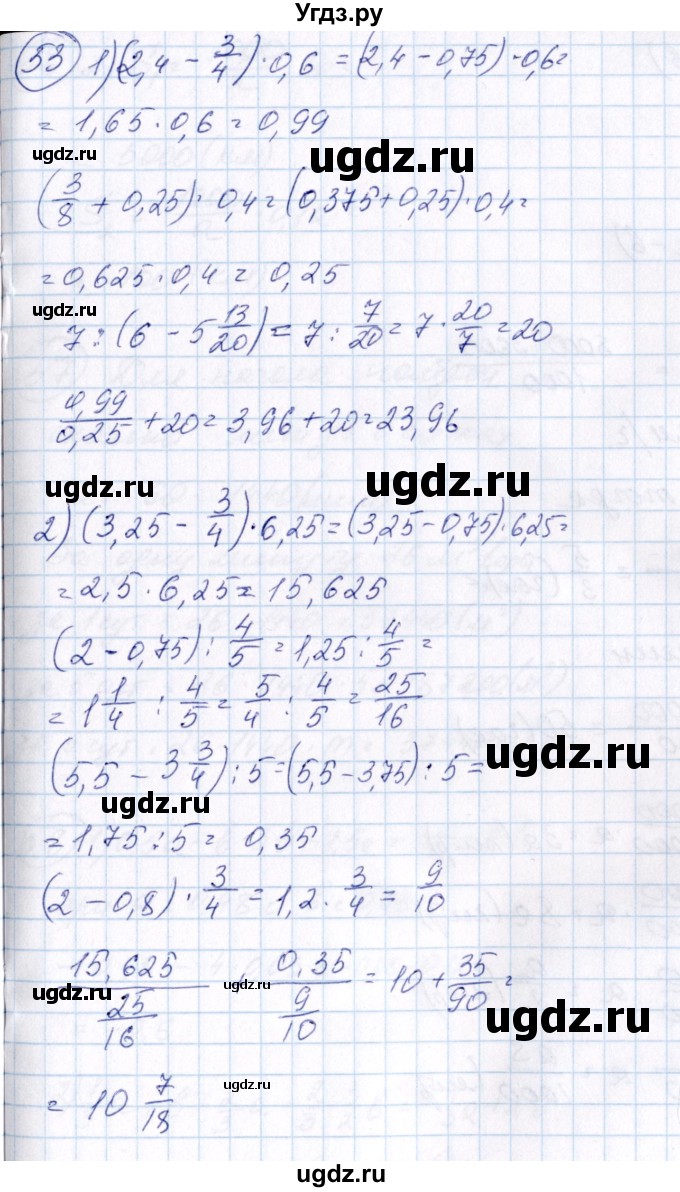 Угдз.ру
53 1) (2,4 - 3/4) · 0,6 = (2,4 - 0,75) · 0,6 =
= 1,65 · 0,6 = 0,99
ugdz.ru
ugdz.ru
(3/8 + 0,25) · 0,4 = (0,375 + 0,25) · 0,4 =
ugdz.ru
ugdz.ru
= 0,625 · 0,4 = 0,25
ugdz.ru
7 : (6 - 5 13/20) = 7 : 7/20 = 7 · 20/7 = 20
0,99/0,25 + 20 = 3,96 + 20 = 23,96
ugdz.ru
ugdz.ru
2) (3,25 - 3/4) · 6,25 = (3,25 - 0,75) · 6,25 =
= 2,5 · 6,25 = 15,625
ugdz.ru
ugdz.ru
(2 - 0,75) : 4/5 = 1,25 : 4/5 =
= 1 1/4 : 4/5 = 5/4 : 4/5 = 25/16
ugdz.ru
(5,5 - 3 3/4) : 5 = (5,5 - 3,75) : 5 =
ugdz.ru
= 1,75 : 5 = 0,35
(2 - 0,8) · 3/4 = 1,2 · 3/4 = 9/10
ugdz.ru
ugdz.ru
15,625/(25/16) + 0,35/(9/10) = 10 + 35/90 =
ugdz.ru
ugdz.ru
ugdz.ru
= 10 7/18
ugdz.ru
ugdz.ru
ugdz.ru